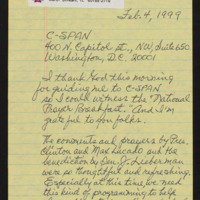 Feb. 4, 1999
C-SPAN
400 N. Capitol St., NW Suite 650
Washington, D.C. 20001
I thank God this morning
for guiding me to C-SPAN
so I could witness the "National
Prayer Breakfast". And I'm
grateful to you folks.
The comments and prayers by Pres.
Clinton and Max Lucado and the
benediction by Sen. J. Lieberman
were so thoughtful and refreshing.
Especially at this time we need
this kind of programming to help